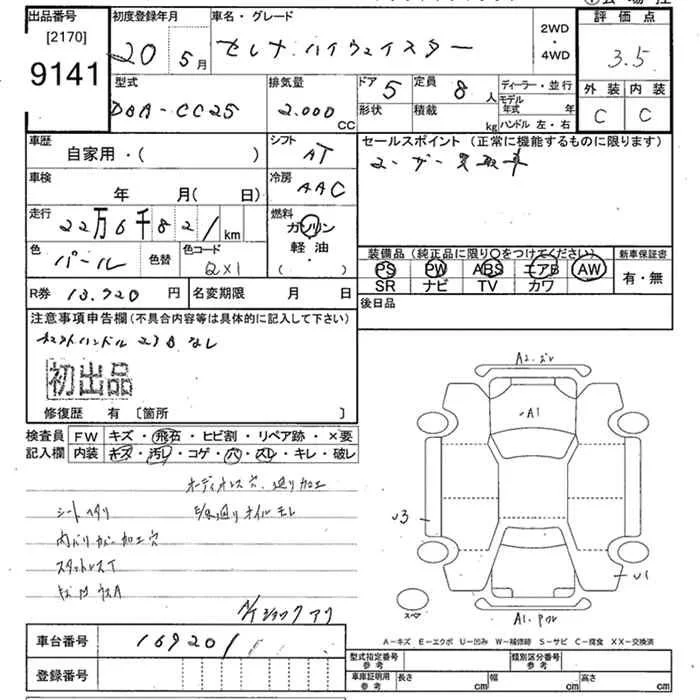 出品番号 初度登録年月 車名・グレード 評価点
[2170]
9141
20年 5月 セレナ ハイウェイスター 2WD・4WD 3.5
型式 排気量 ドア 5 定員 8人 ディーラー・並行 外装 内装
DBA-CC25 2.000 CC 形状 積載 kg モデル年式 年 ハンドル 左・右 C C
車歴 シフト セールスポイント (正常に機能するものに限ります)
自家用・( ) AT ユーザー買取車
車検 冷房
年 月( 日) AAC
走行 燃料
22万6千821km ガソリン
軽・油
・
( )
色 色替 色コード
パール QX1
装備品(純品品に限り○をつけてください) 新車保証書
PS PW ABS エアB AW 有・無
SR ナビ TV カワ
R券 13.920円 名変期限 月 日 後日品
注意事項申告欄(不具合内容等は具体的に記入して下さい)
なし
初出品
修復歴 有〔箇所 〕
検査員 FW キズ・飛石・ヒビ割・リペア跡・×要
記入欄 内装 キズ・汚レ・コゲ・穴・スレ・キレ・破レ
オーディオレス穴、
シートヘタリ オイルモレ
内バリカバー加工穴
スタットレスT
A1
U3
U1
スペア
A-キズ E-エクボ U-凹み W-補修跡 S-サビ C-腐食 XX-交換済
車台番号 169201
登録番号
型式指定番号 参考 類別区分番号 参考
車庫証明用 参考 長さ cm 幅 cm 高さ cm